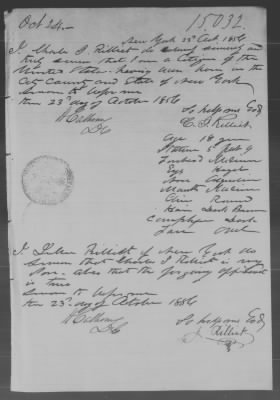 Oct 24.—
15,032.
New York 23d Oct. 1856
I, Charles J. Rilliet do solemnly
truly swear that I am a Citizen of the
United States. having been born in the
City County and State of New York
Sworn to before me
this 23d day of October 1856
So help me God
C. J. Rilliet.
D C
Age 18 years
Stature 5 feet 9
Forehead Medium
Eyes Hazel
Nose
Mouth Medium
Chin Round
Hair Dark Brown
Complexion Dark
Face Oval
I, Rilliet of New York do
swear that Charles J Rilliet is my
Son. also that the foregoing affidavit
is true
Sworn to before me
this 23d day of October 1856
So help me God
D C
J. Rilliet